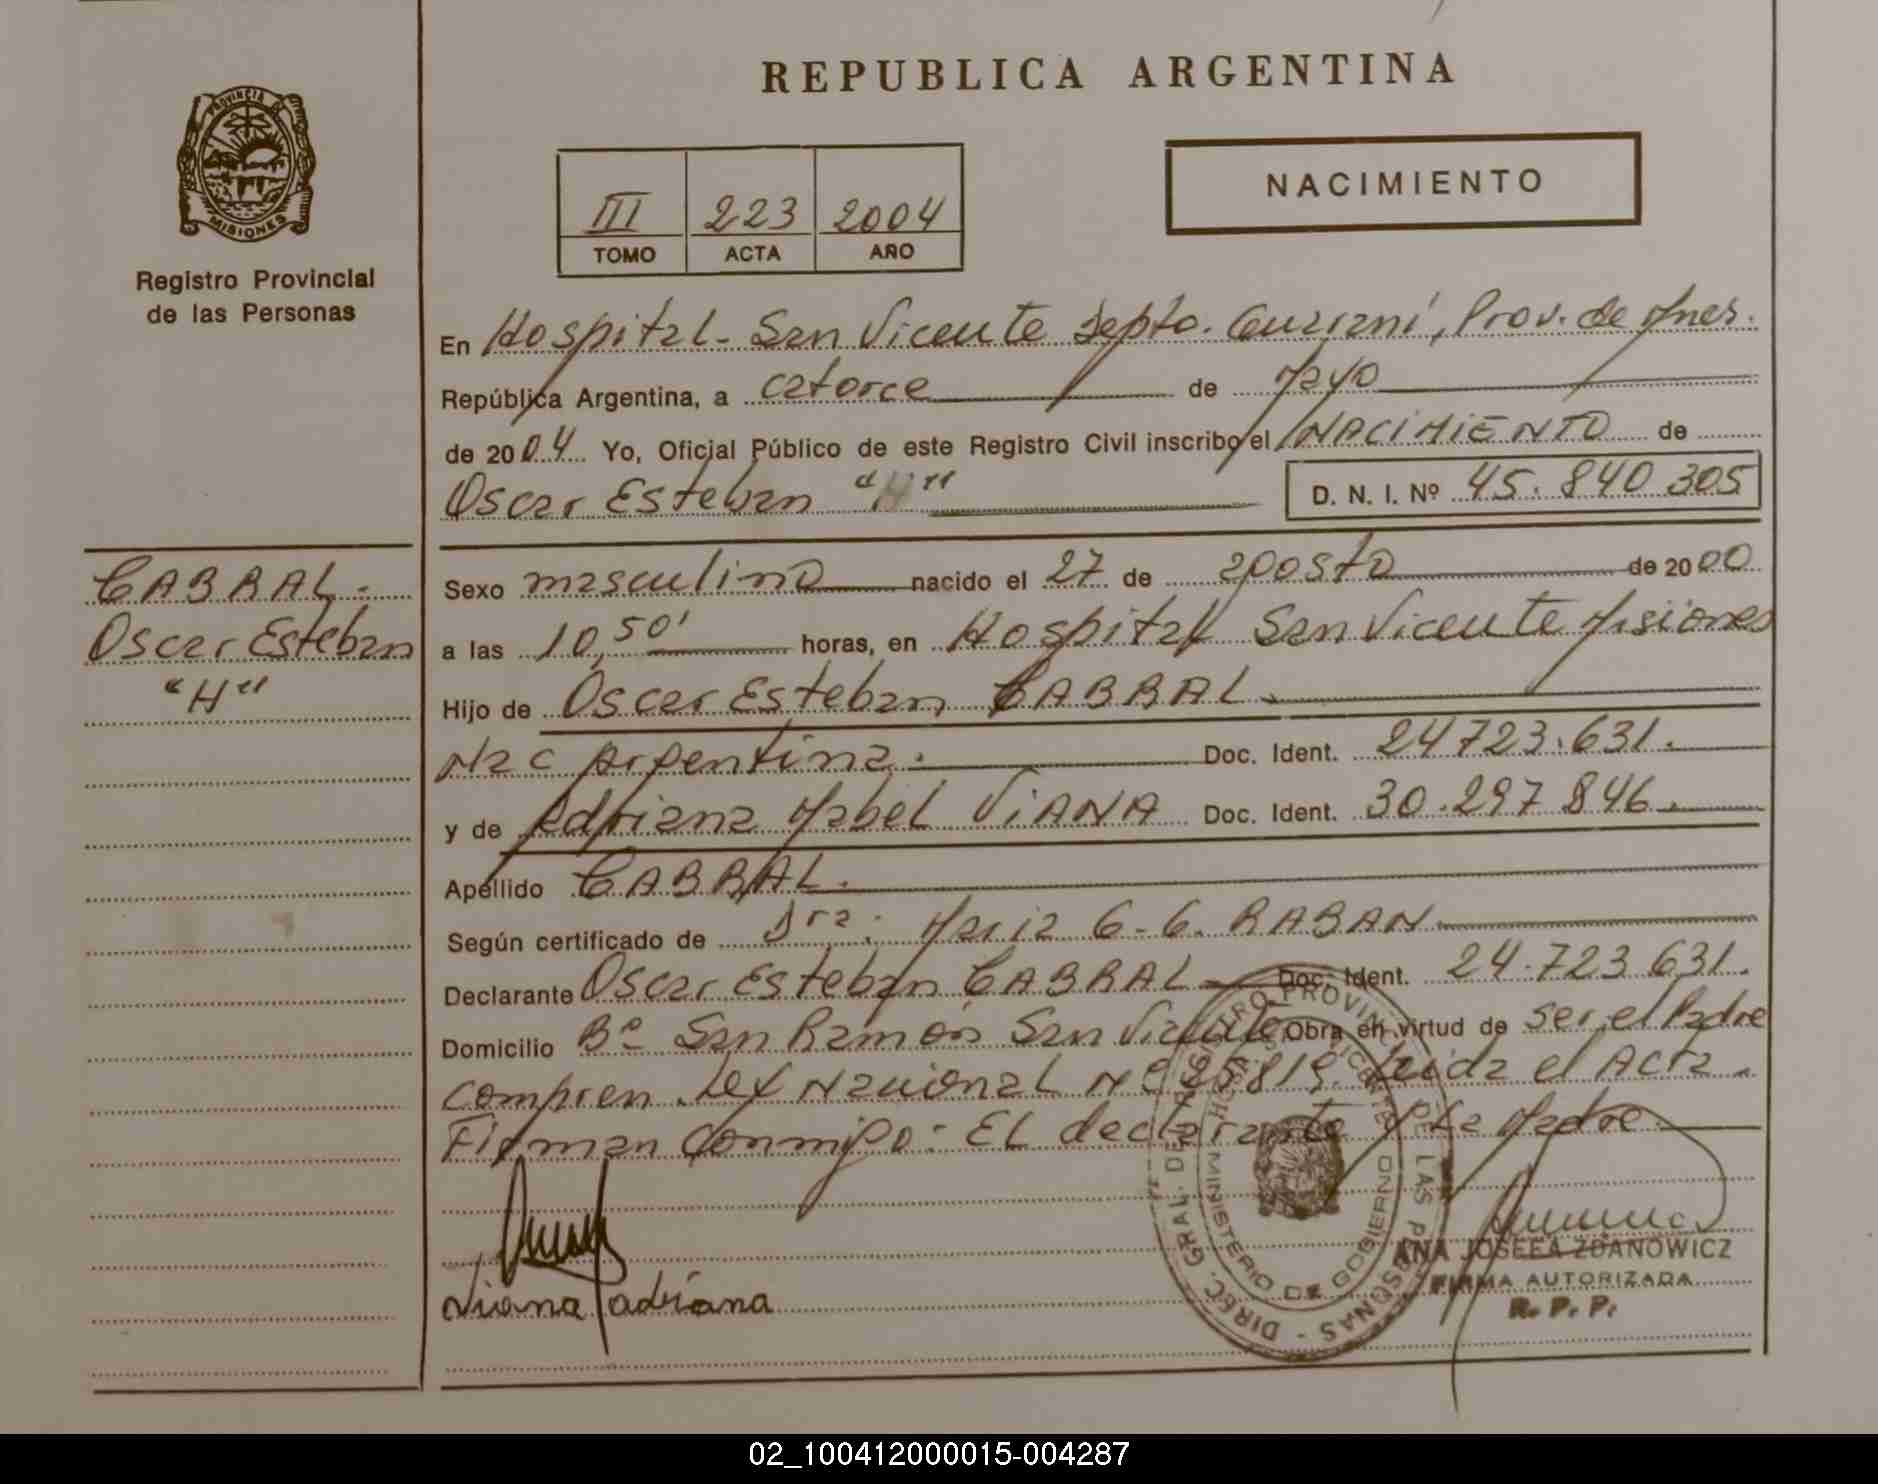 REPUBLICA ARGENTINA
PROVINCIA DE
MISIONES
Registro Provincial
de las Personas
NACIMIENTO
III 223 2004
TOMO ACTA AÑO
En Hospital - San Vicente Depto. Guaraní, Prov. de Mnes.
República Argentina, a catorce de Mayo
de 2004 Yo, Oficial Público de este Registro Civil inscribo el NACIMIENTO de
Oscar Esteban "H" D. N. I. Nº 45.840 305
CABRAL.
Oscar Esteban
"H"
Sexo masculino nacido el 27 de agosto de 2000
a las 10,50' horas, en Hospital San Vicente Misiones
Hijo de Oscar Esteban CABRAL
Nac Argentina. Doc. Ident. 24723.631.
y de Adriana Mabel ViANA Doc. Ident. 30.297 846.
Apellido CABRAL.
Según certificado de Dra: Maria G. G. RABAN
Declarante Oscar Esteban CABRAL Doc. Ident. 24.723 631.
Domicilio Bº San Ramón San Vicente Obra en virtud de ser el Padre
Compren. Ley Nacional Nº 25819. Leida el Acta.
Firman Conmigo: EL declarante y La Madre.
Viana adriana
DIREC. GRAL. DEL REGISTRO PROVINCIAL DE LAS PERSONAS
MINISTERIO DE GOBIERNO
ANA JOSEFA ZDANOWICZ
FIRMA AUTORIZADA
R. P. P.
02_100412000015-004287